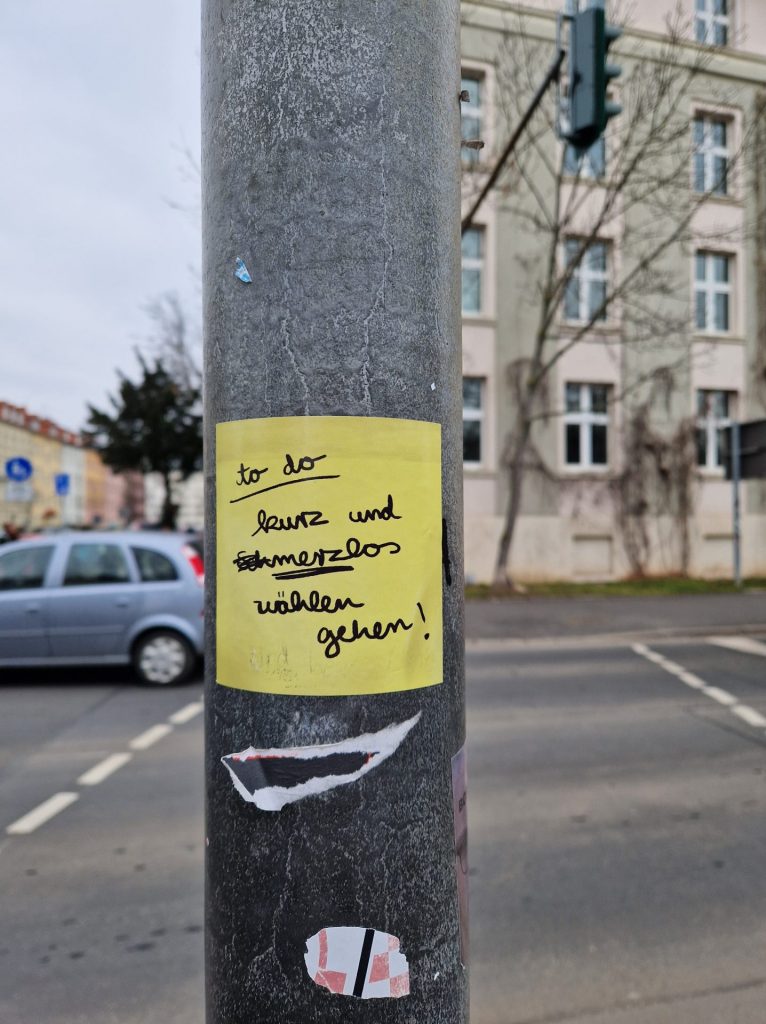 to do
kurz und
schmerzlos
wählen
gehen!